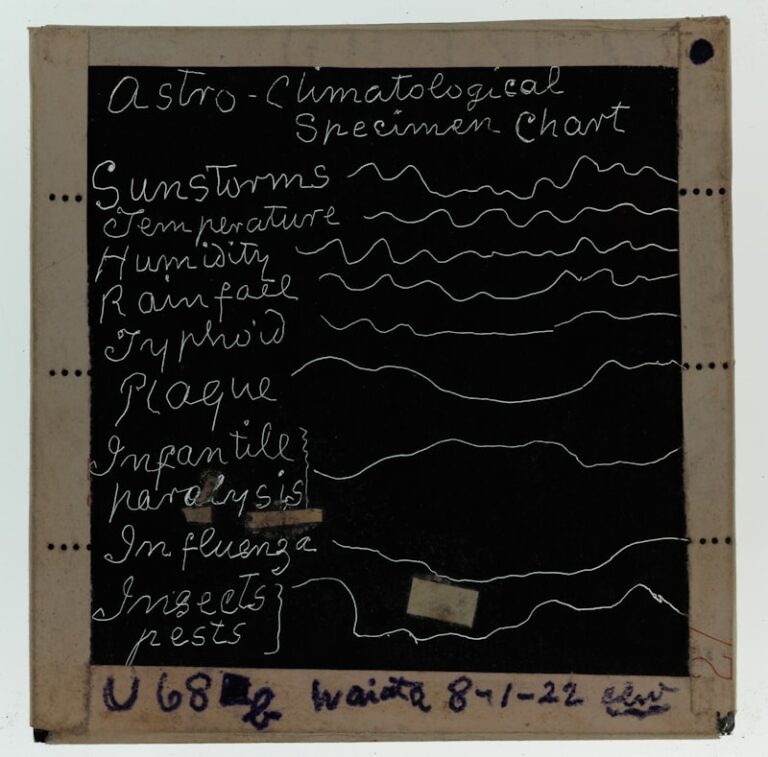 Astro-Climatological
Specimen Chart
Sunstorms
Temperature
Humidity
Rainfall
Typhoid
Plaque
Infantile
paralysis
Influenza
Insects
pests
U 68 b Waiata 8-1-22